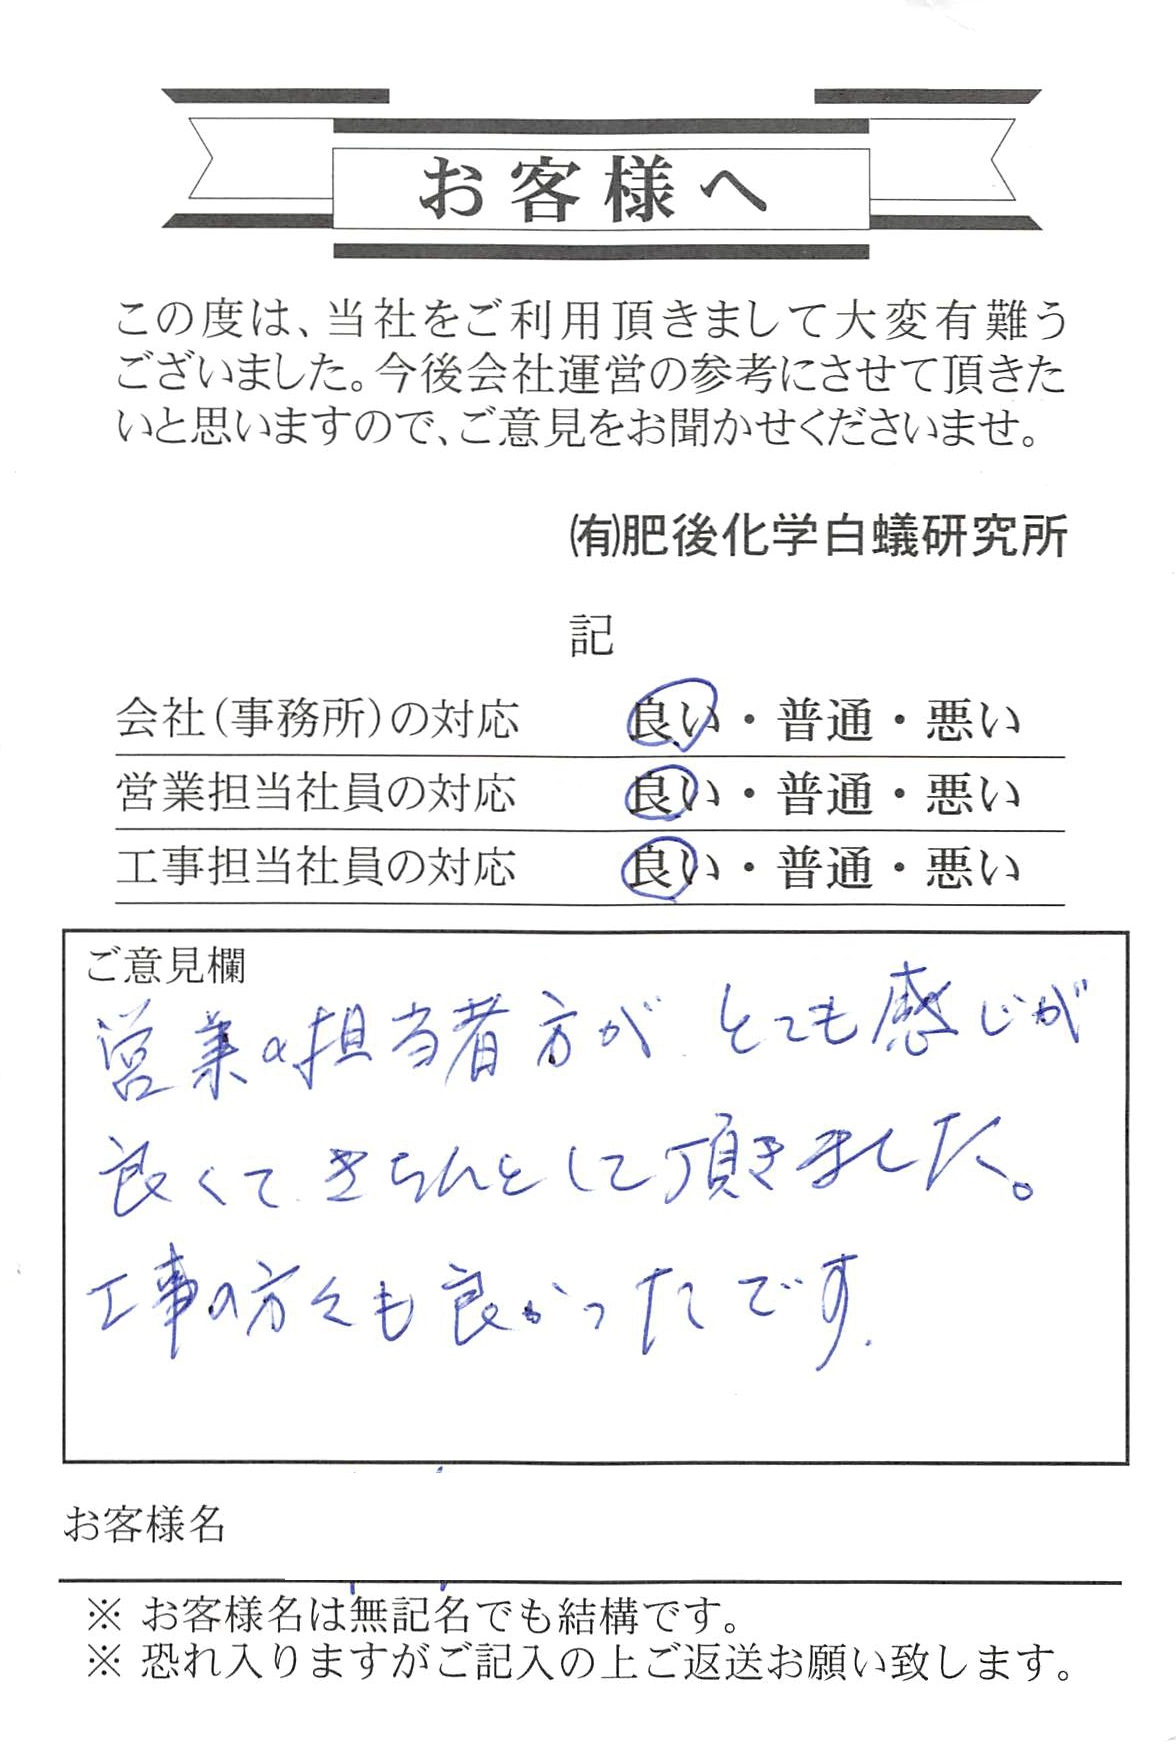 お客様へ
この度は、当社をご利用頂きまして大変有難う
ございました。今後会社運営の参考にさせて頂きた
いと思いますので、ご意見をお聞かせくださいませ。
㈲肥後化学白蟻研究所
記
会社(事務所)の対応 良い・普通・悪い
営業担当社員の対応 良い・普通・悪い
工事担当社員の対応 良い・普通・悪い
ご意見欄
営業の担当者方がとても感じが
良くてきちんとして頂きました。
工事の方々も良かったです.
お客様名
※ お客様名は無記名でも結構です。
※ 恐れ入りますがご記入の上ご返送お願い致します。